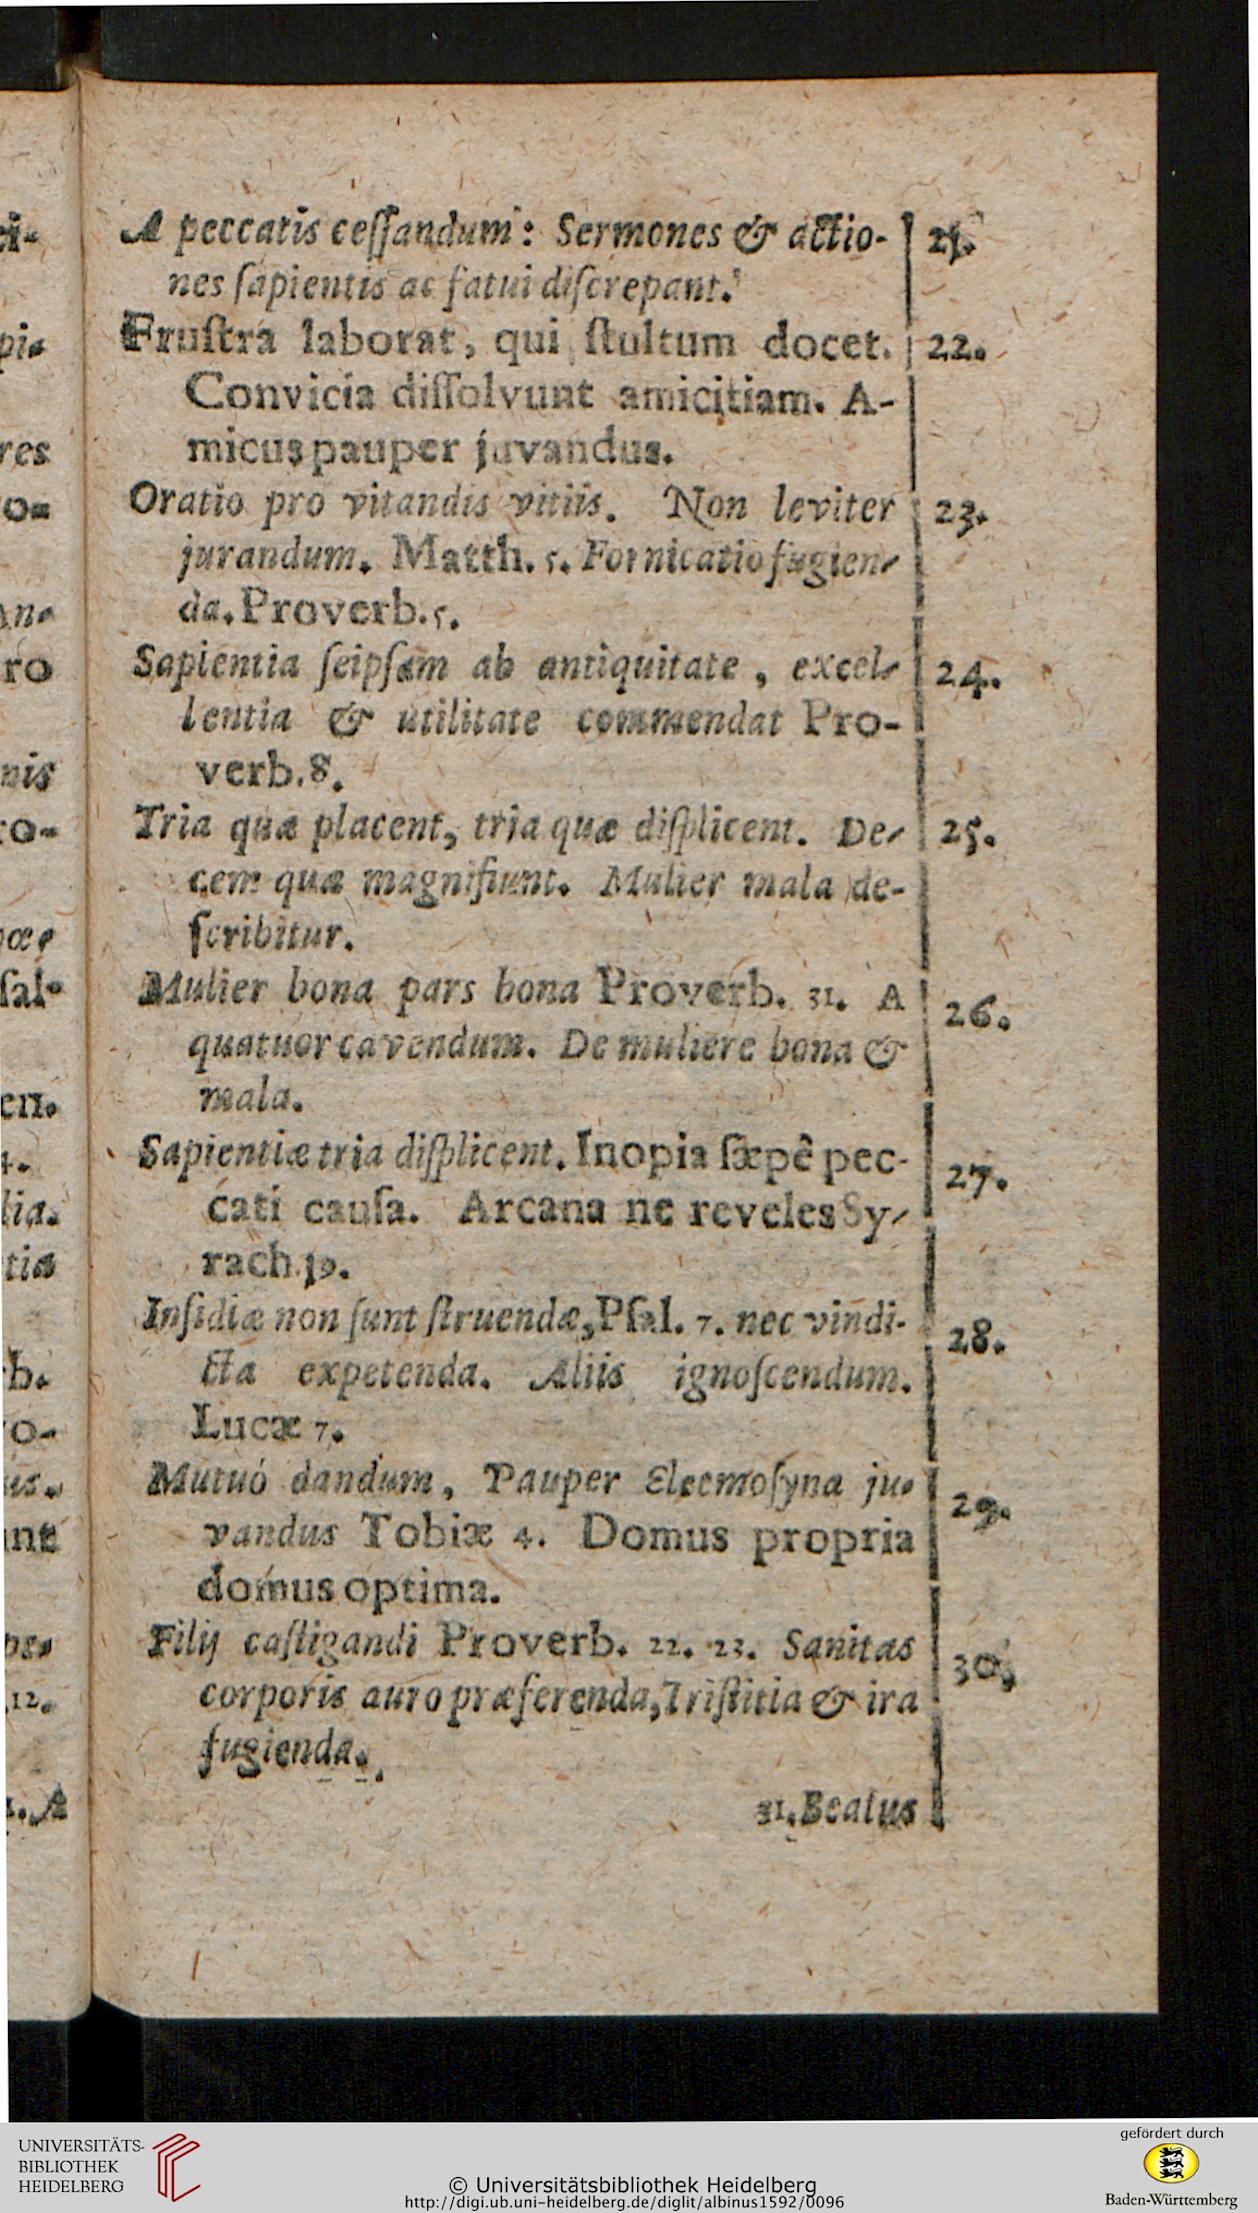 A peccatis ceſſandum: Sermones & actio- 21.
nes ſapientis ac fatui diſcrepant.
Fruſtra laborat, qui ſtultum docet. 22.
Convicia diſſolvunt amicitiam. A-
micus pauper juvandus.
Oratio pro vitandis vitiis. Non leviter 23.
jurandum. Matth. 5. Fornicatio fugien-
da. Proverb. 5.
Sapientia ſeipſam ab antiquitate, excel- 24.
lentia & utilitate commendat Pro-
verb. 8.
Tria quæ placent, tria quæ diſplicent. De- 25.
cem quæ magnifiunt. Mulier mala de-
ſcribitur.
Mulier bona pars bona Proverb. 31. A 26.
quatuor cavendum. De muliere bona &
mala.
Sapientiæ tria diſplicent. Inopia ſæpê pec- 27.
cati cauſa. Arcana ne reveles Sy-
rach. 19.
Inſidiæ non ſunt ſtruendæ, Pſal. 7. nec vindi- 28.
cta expetenda. Aliis ignoſcendum.
Lucæ 7.
Mutuó dandum, Pauper Eleemoſyna ju- 29.
vandus Tobiæ 4. Domus propria
domus optima.
Filij caſtigandi Proverb. 22. 23. Sanitas 30.
corporis auro præferenda, Triſtitia & ira
fugienda.
31. Beatus
UNIVERSITÄTS-
BIBLIOTHEK
HEIDELBERG
© Universitätsbibliothek Heidelberg
http://digi.ub.uni-heidelberg.de/diglit/albinus1592/0096
gefördert durch
Baden-Württemberg